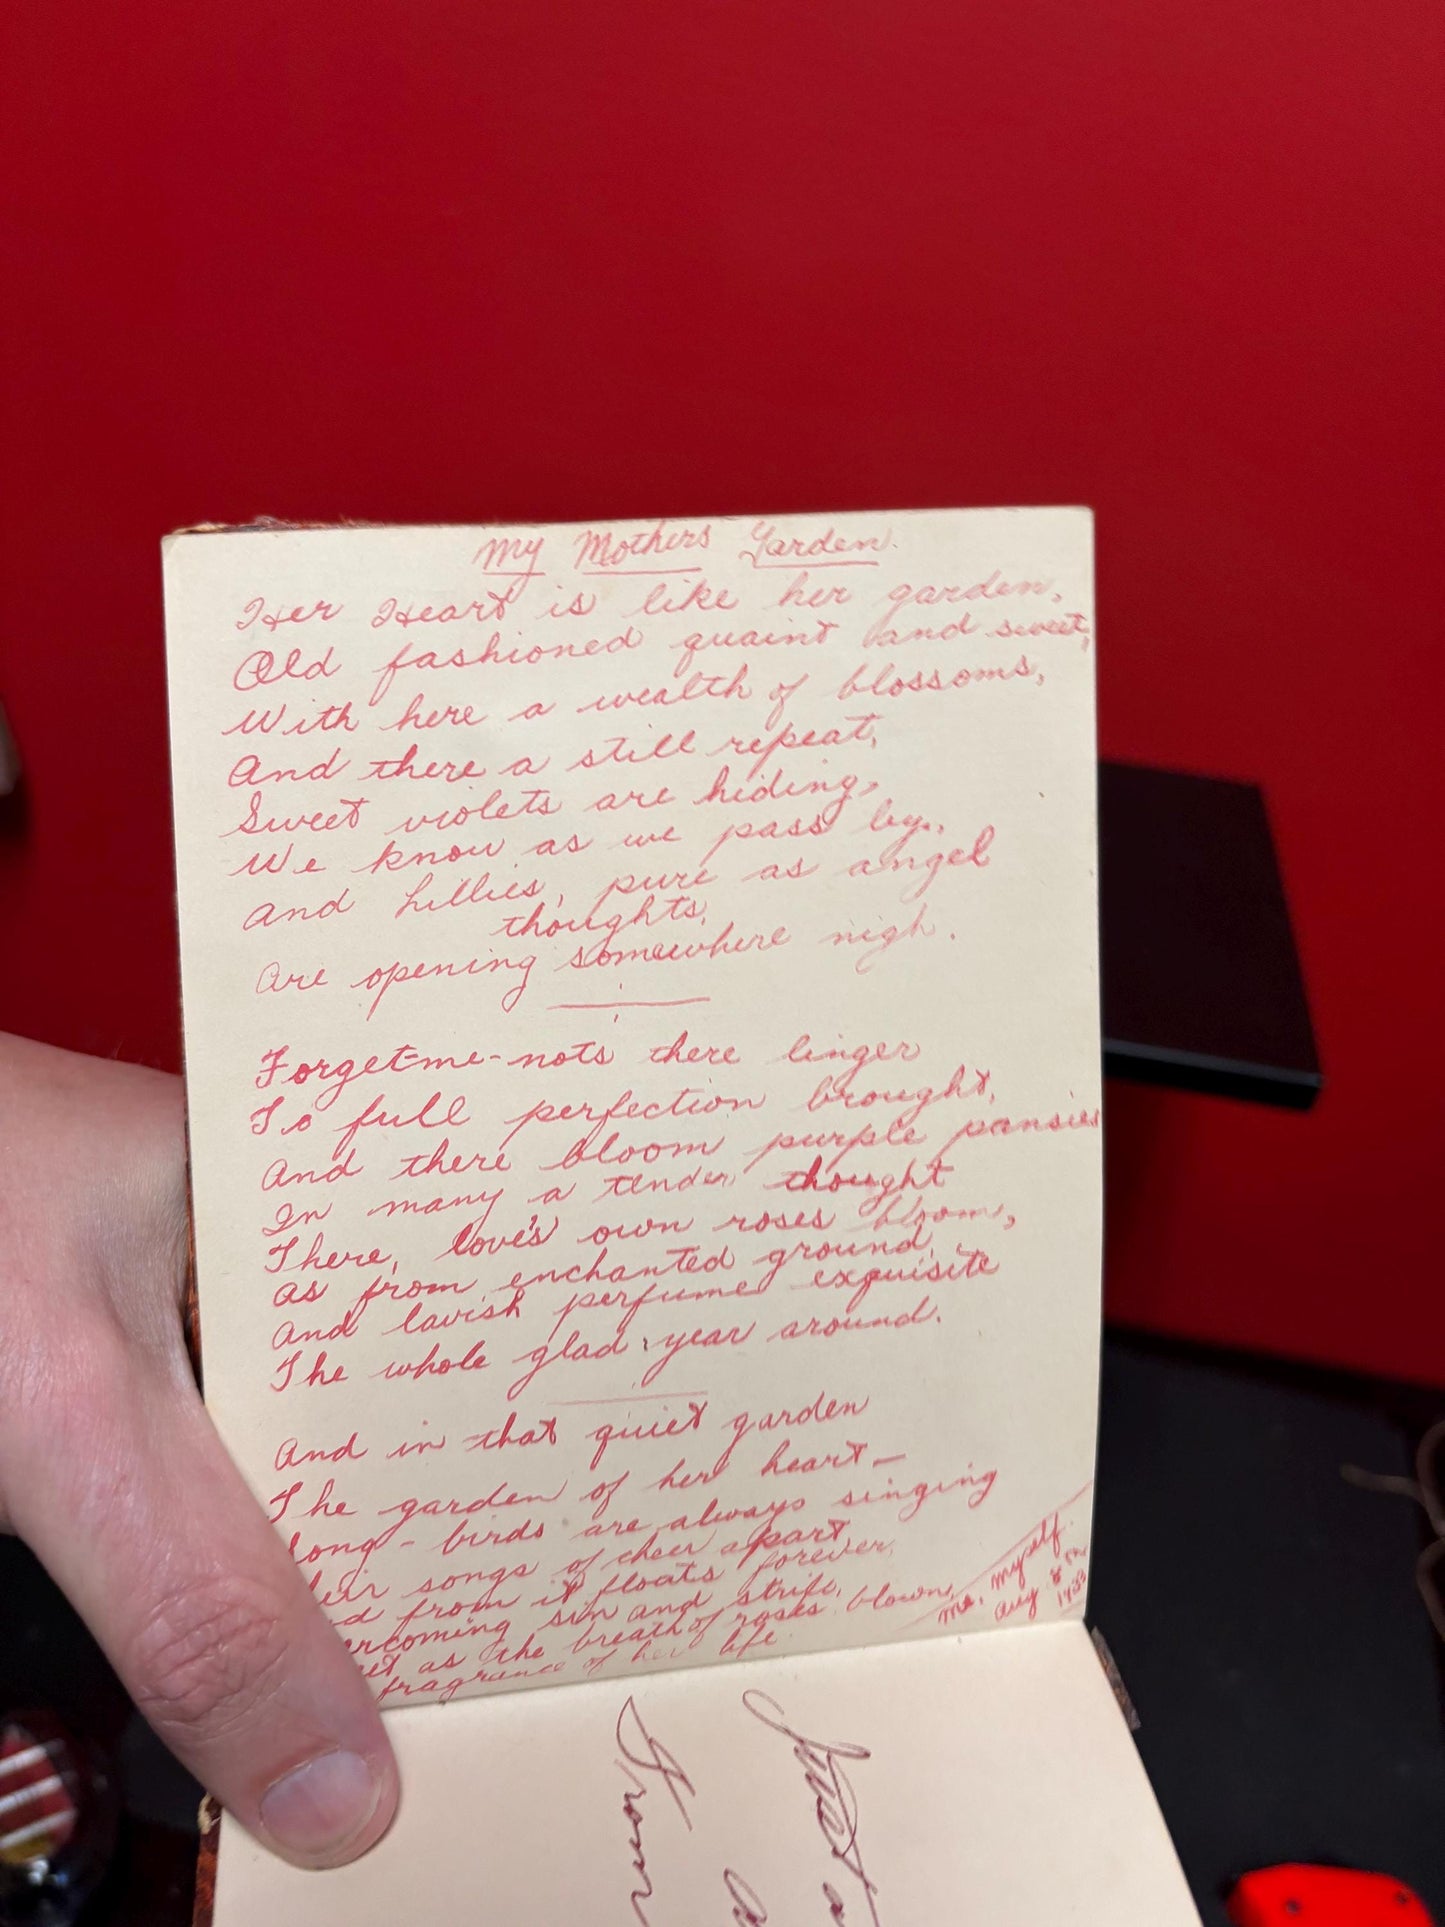 My Mothers Garden.
Her Heart is like her garden,
Old fashioned quaint and sweet,
With here a wealth of blossoms,
And there a still repeat,
Sweet violets are hiding,
We know as we pass by,
And Lillies, pure as angel
thoughts,
Are opening somewhere nigh.
Forget-me-nots there linger
To full perfection brought,
And there bloom purple pansies
In many a tender thought
There, love's own roses bloom,
As from enchanted ground,
And lavish perfume exquisite
The whole glad year around.
And in that quiet garden
The garden of her heart—
Song-birds are always singing
eir songs of cheer apart
d from it floats forever,
ercoming sin and strife,
et as the breath of roses blown,
fragrance of her life.
Me, Myself.
Aug 8
1933
Just a
From